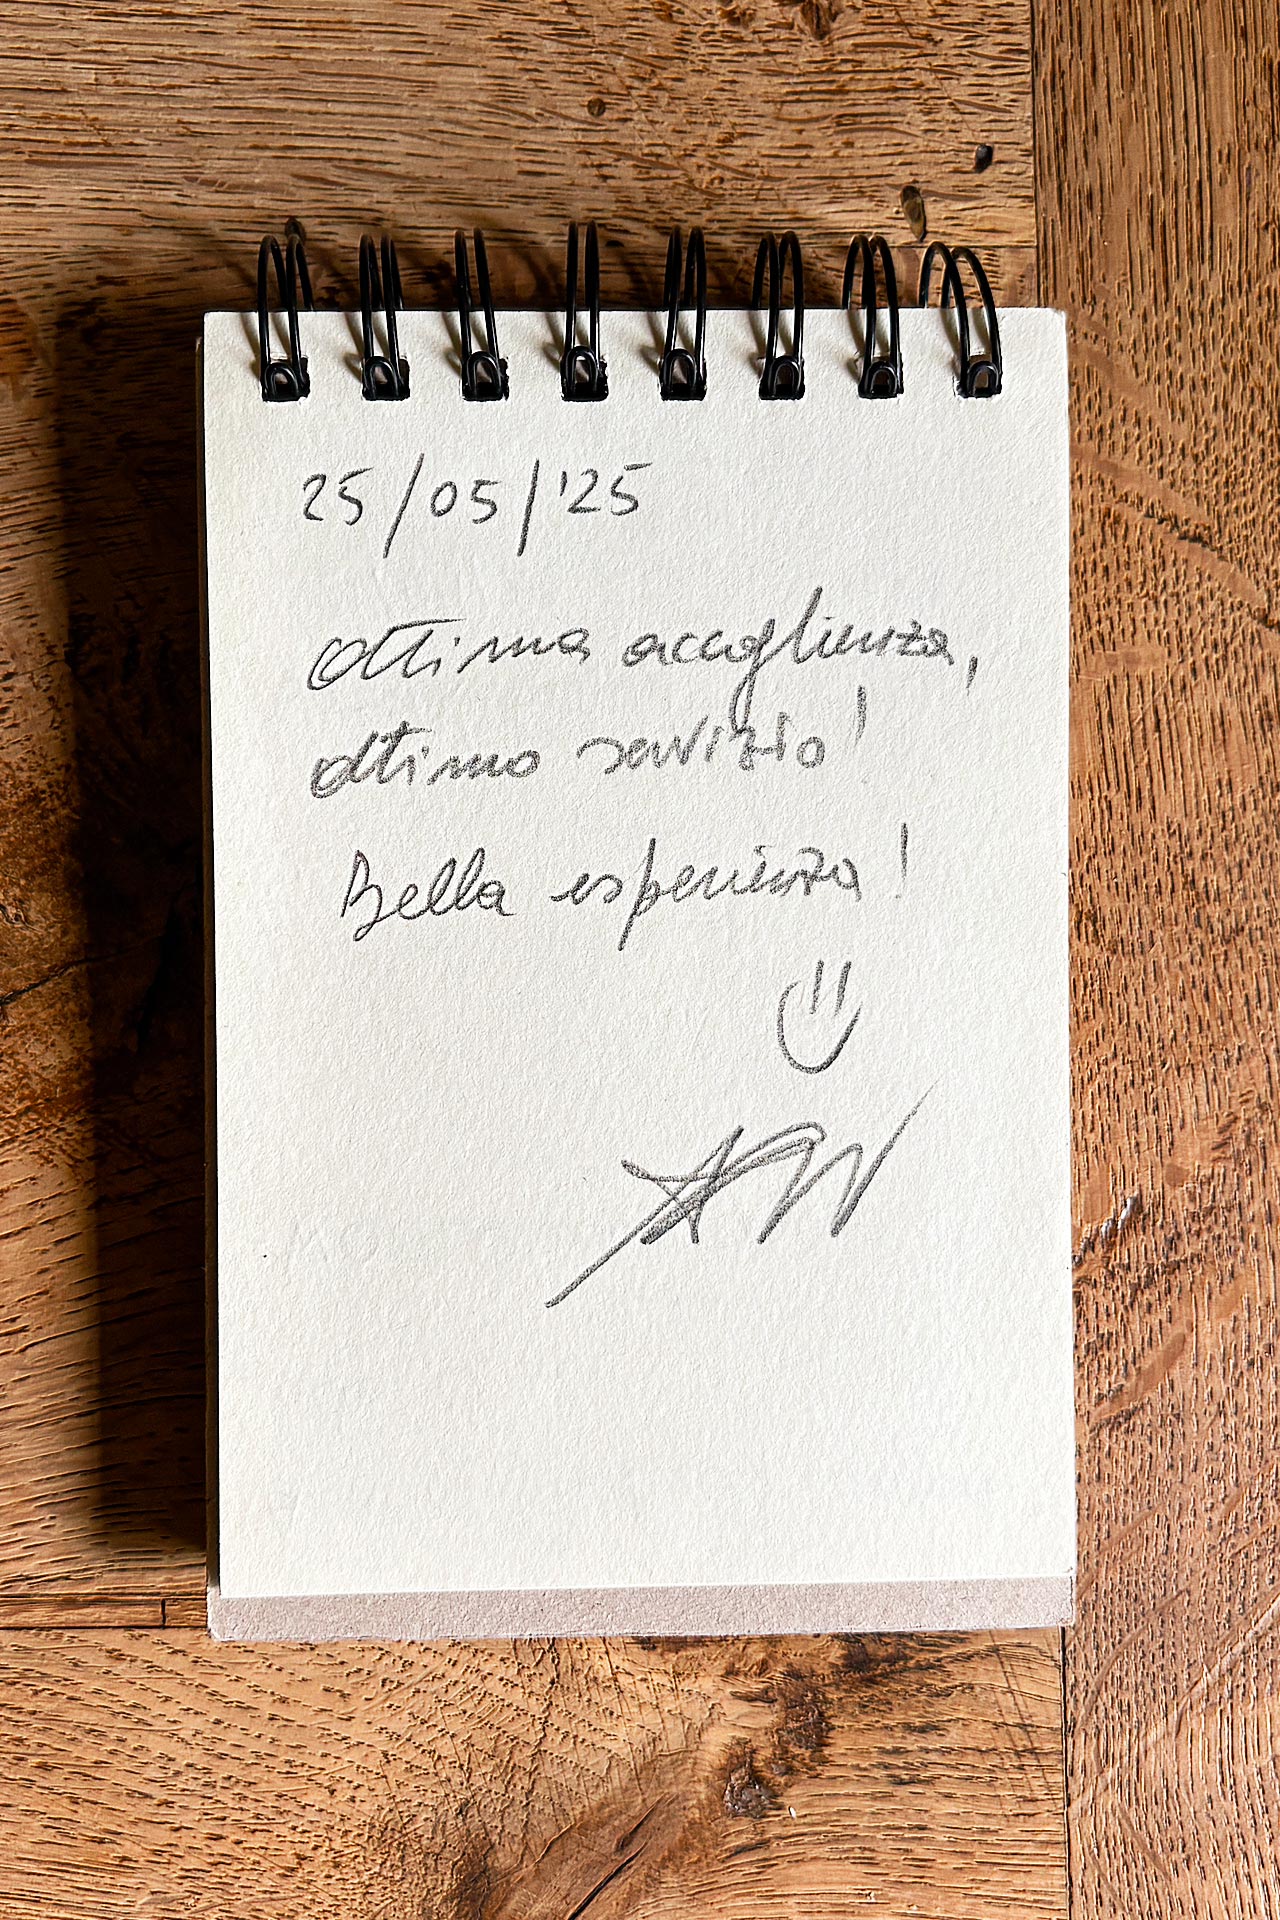 25/05/'25
Ottima accoglienza,
ottimo servizio!
Bella esperienza!